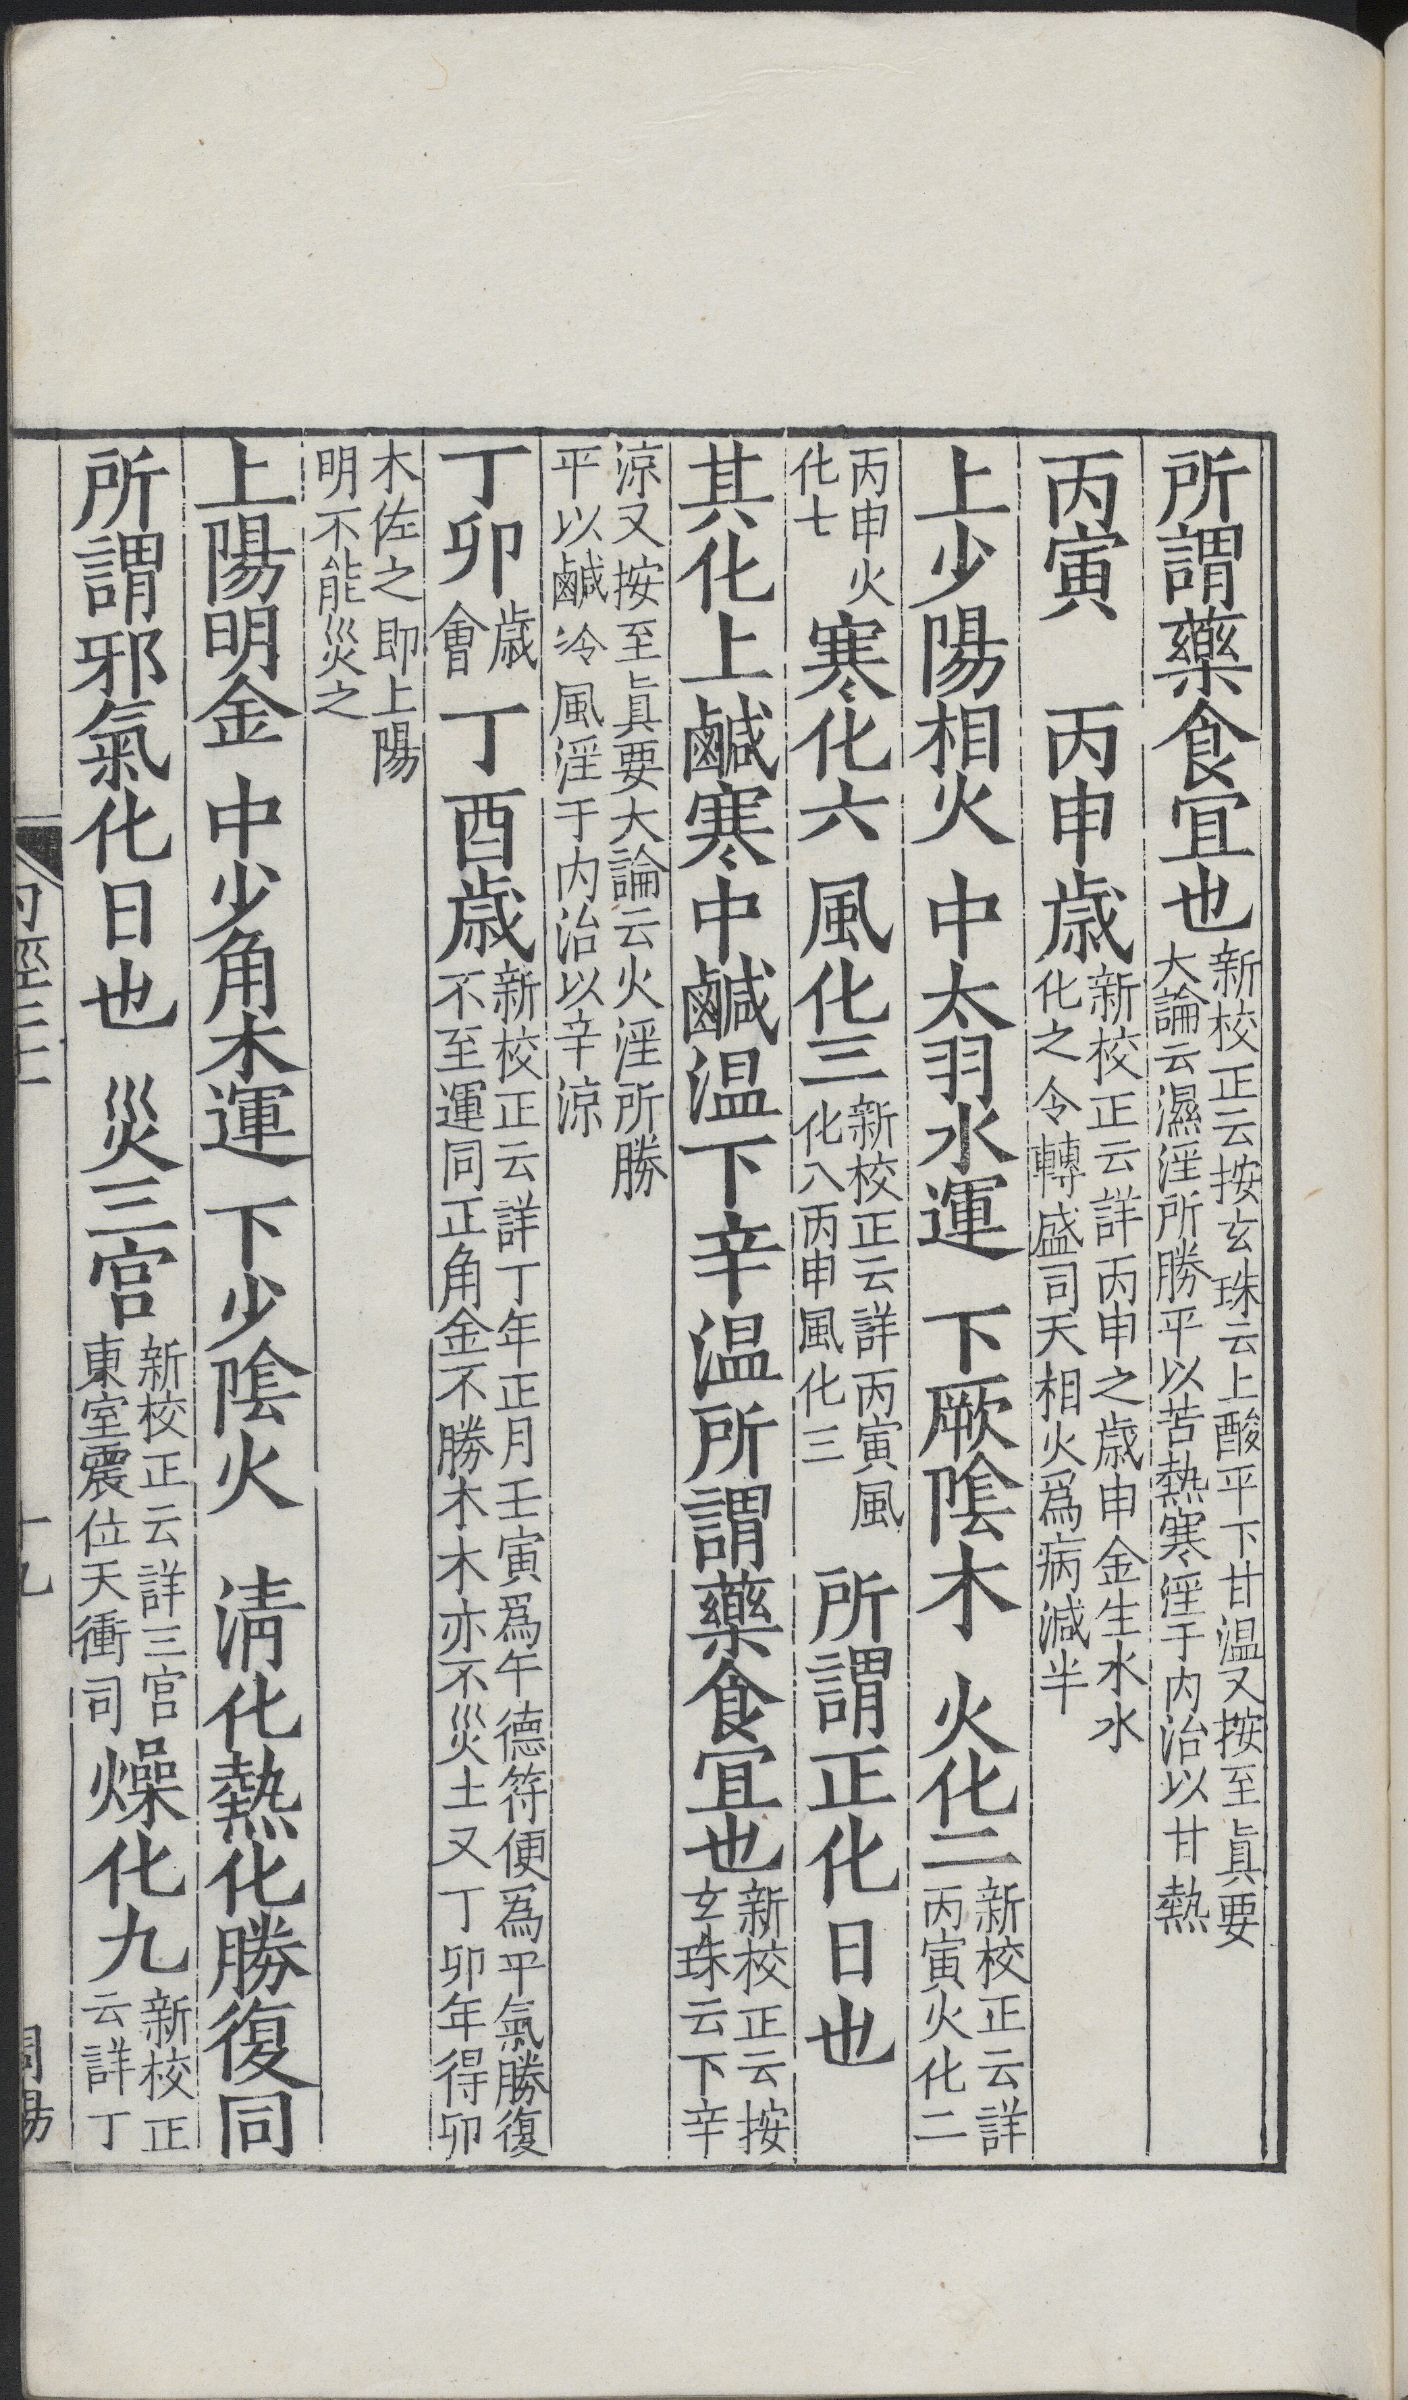 所謂藥食宜也新校正云按玄珠云上酸平下甘温又按至眞要大論云濕淫所勝平以苦熱寒淫于内治以甘熱
丙寅　丙申歳新校正云詳丙申之歳申金生水水化之令轉盛司天相火爲病減半
上少陽相火　中太羽水運　下厥陰木　火化二新校正云詳丙寅火化二
丙申火化七　寒化六　風化三新校正云詳丙寅風化八丙申風化三　所謂正化日也
其化上鹹寒中鹹温下辛温所謂藥食宜也新校正云按玄珠云下辛
涼又按至眞要大論云火淫所勝平以鹹冷風淫于内治以辛涼
丁卯歳會　丁酉歳新校正云詳丁年正月壬寅爲午德符便爲平氣勝復不至運同正角金不勝木木亦不災土又丁卯年得卯
木佐之即上陽明不能災之
上陽明金　中少角木運　下少陰火　清化熱化勝復同
所謂邪氣化日也　災三宫新校正云詳三宫東室震位天衝司　燥化九新校正云詳丁